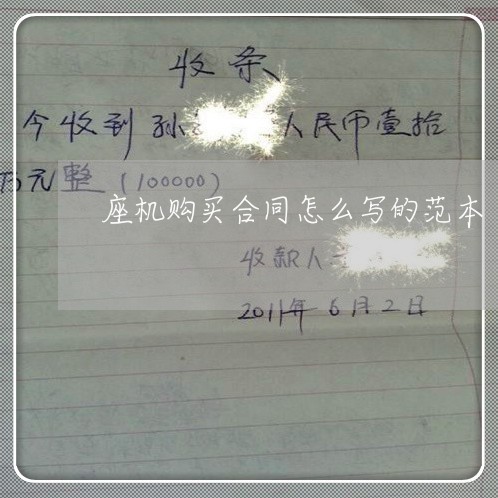 收条
今收到孙 人民币壹拾
万元整(100000)
座机购买合同怎么写的范本
收款人
2011年6月2日